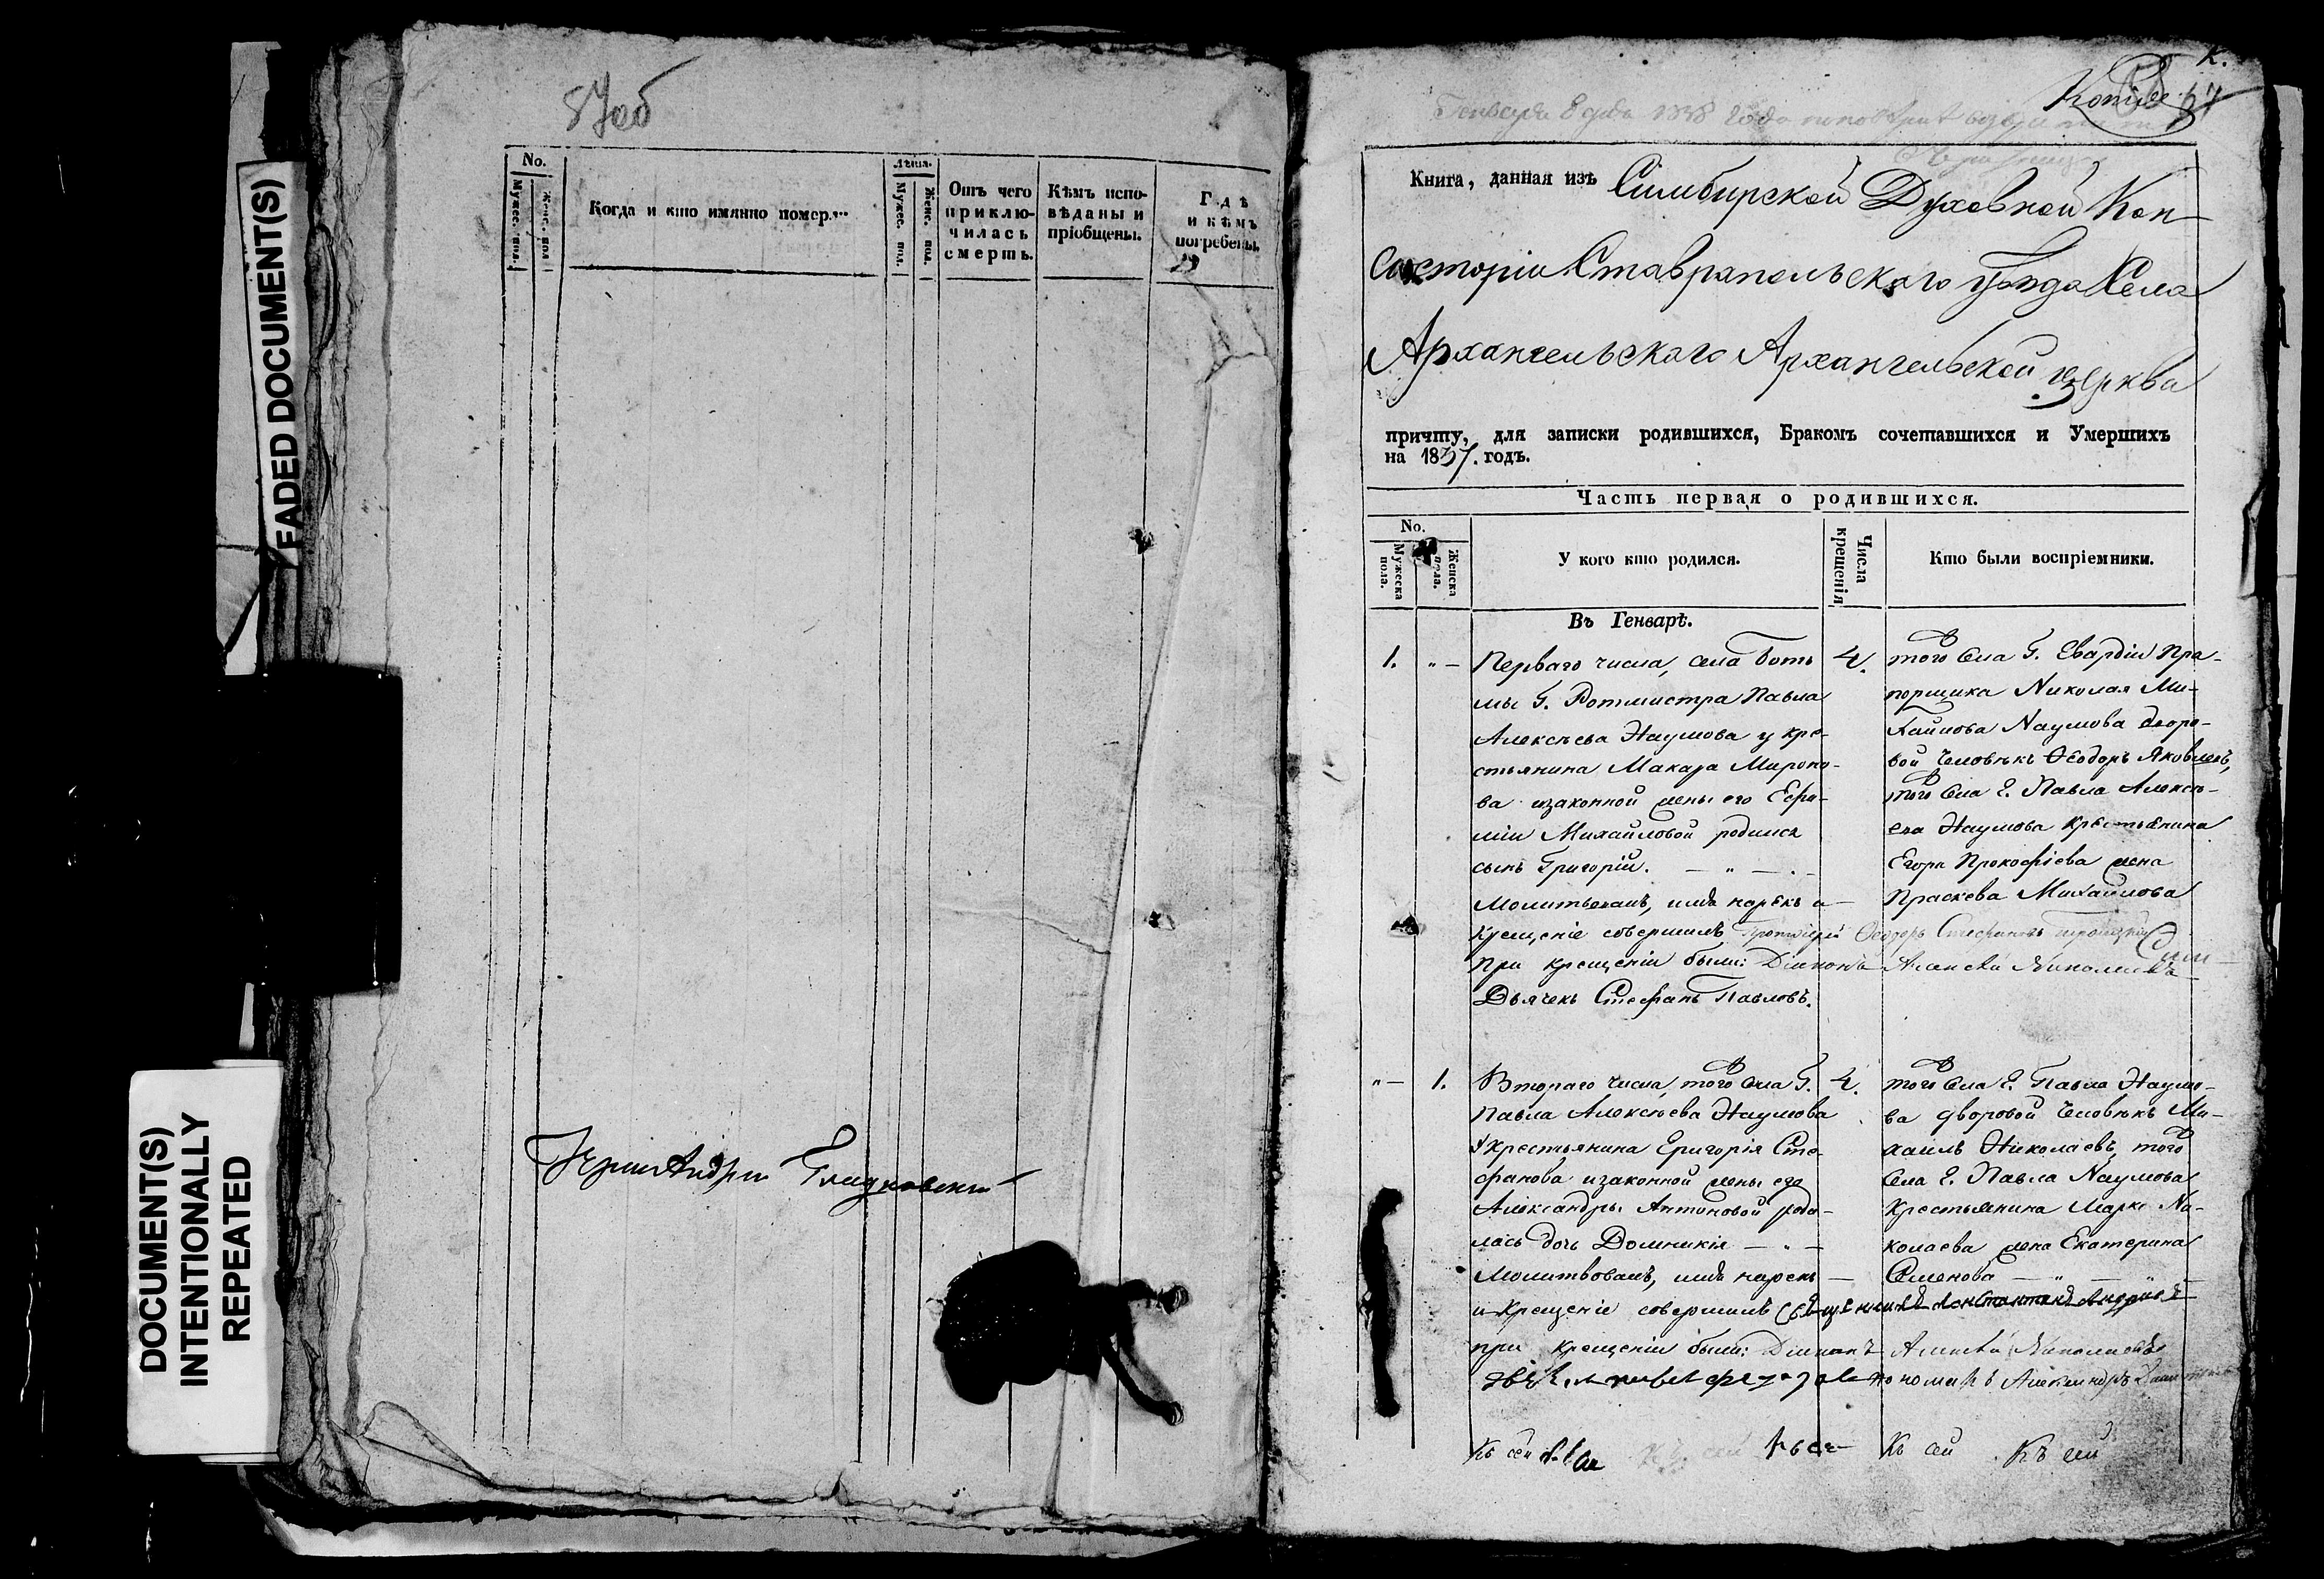 FADED DOCUMENT(S)
DOCUMENT(S)
INTENTIONALLY
REPEATED
87об
No.
Мужес. пол.
Женс. пол
Когда и кто имянно померъ
Лѣта.
Мужес. пол.
Женс. пол.
Отъ чего
приклю-
чилась
смерть.
Кѣмъ испо-
вѣданы и
пріобщены.
Гдѣ
и кѣмъ
погребены.
Іерей Андрей
Копія
Генваря 8 дня 1838 года
Книга, данная изъ Симбирской Духовной Кон-
систоріи Ставропольскаго уѣзда Села
Архангельскаго Архангельской церкви
причту, для записки родившихся, Бракомъ сочетавшихся и Умершихъ
на 1837. годъ.
Часть первая о родившихся.
No.
Мужеска
пола.
Женска
пола.
У кого кто родился.
Числа
крещенія
Кто были воспріемники.
Въ Генварѣ.
1. " —
Перваго числа, села Боть
мы Г. Ротмистра Павла
Алексѣева Наумова у кре-
стьянина Макара Мироно-
ва и законной жены его
Михайловой родился
сынъ Григорій. — " —
Молитвовалъ, имя нарекъ и
Крещеніе совершилъ Протоіерей Ѳеодоръ
При крещеніи были: Діаконъ Алексѣй Николаевъ
Дьячекъ Стефанъ Павловъ.
4.
того села Г. Гвардіи Пра-
порщика Николая Ми-
хайлова Наумова дворо-
вой человѣкъ Ѳеодоръ Яковлевъ,
того села Г. Павла Алексѣ-
ева Наумова крестьянина
Егора Прокофіева жена
Праскева Михайлова
" — 1.
Втораго числа, того села Г.
Павла Алексѣева Наумова
у крестьянина Григорія Сте-
фанова и законной жены его
Александры Антоновой роди-
лась дочь Домникія — " —
Молитвовалъ, имя нарекъ —
и крещеніе совершилъ Священникъ Константинъ Андреевъ
при крещеніи были: Діаконъ Алексѣй Николаевъ
пономарь Александръ
4.
того села Г. Павла Наумо-
ва дворовой человѣкъ Ми-
хаилъ Николаевъ, того
села Г. Павла Наумова
крестьянина Марка Ни-
колаева жена Екатерина
Семенова — " —
Къ сей
Къ сей
Къ сей
Къ сей